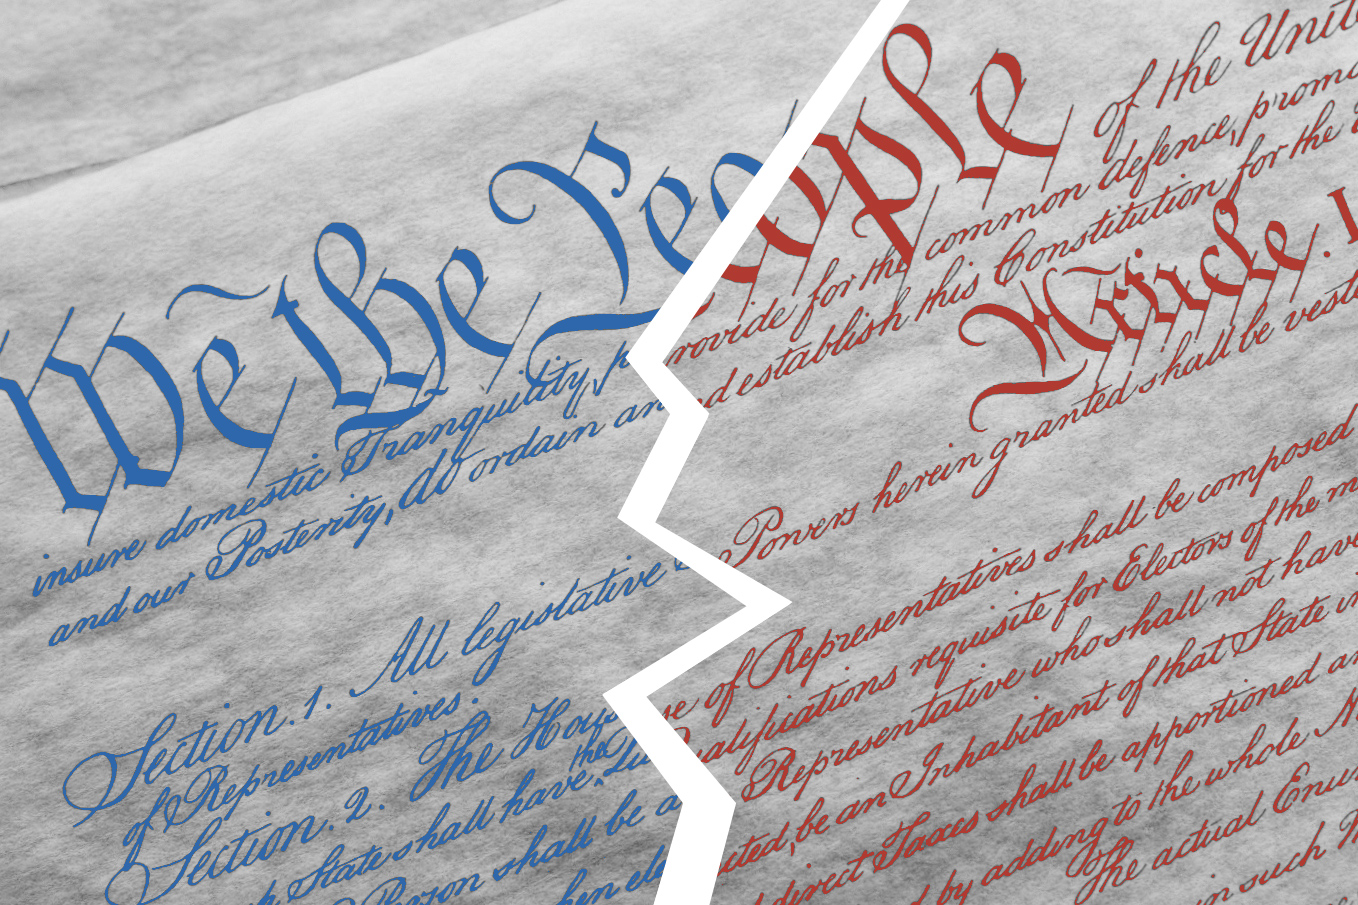 We the People of the Unit
insure domestic Tranquility, provide for the common defence, promo
and our Posterity, do ordain and establish this Constitution for the
Article. I
Section. 1. All legislative Powers herein granted shall be vest
of Representatives.
Section. 2. The House of Representatives shall be composed
State shall have the Qualifications requisite for Electors of the m
Person shall be a Representative who shall not have
hen elected, be an Inhabitant of that State in
direct Taxes shall be apportioned a
by adding to the whole N
The actual Enu
in such